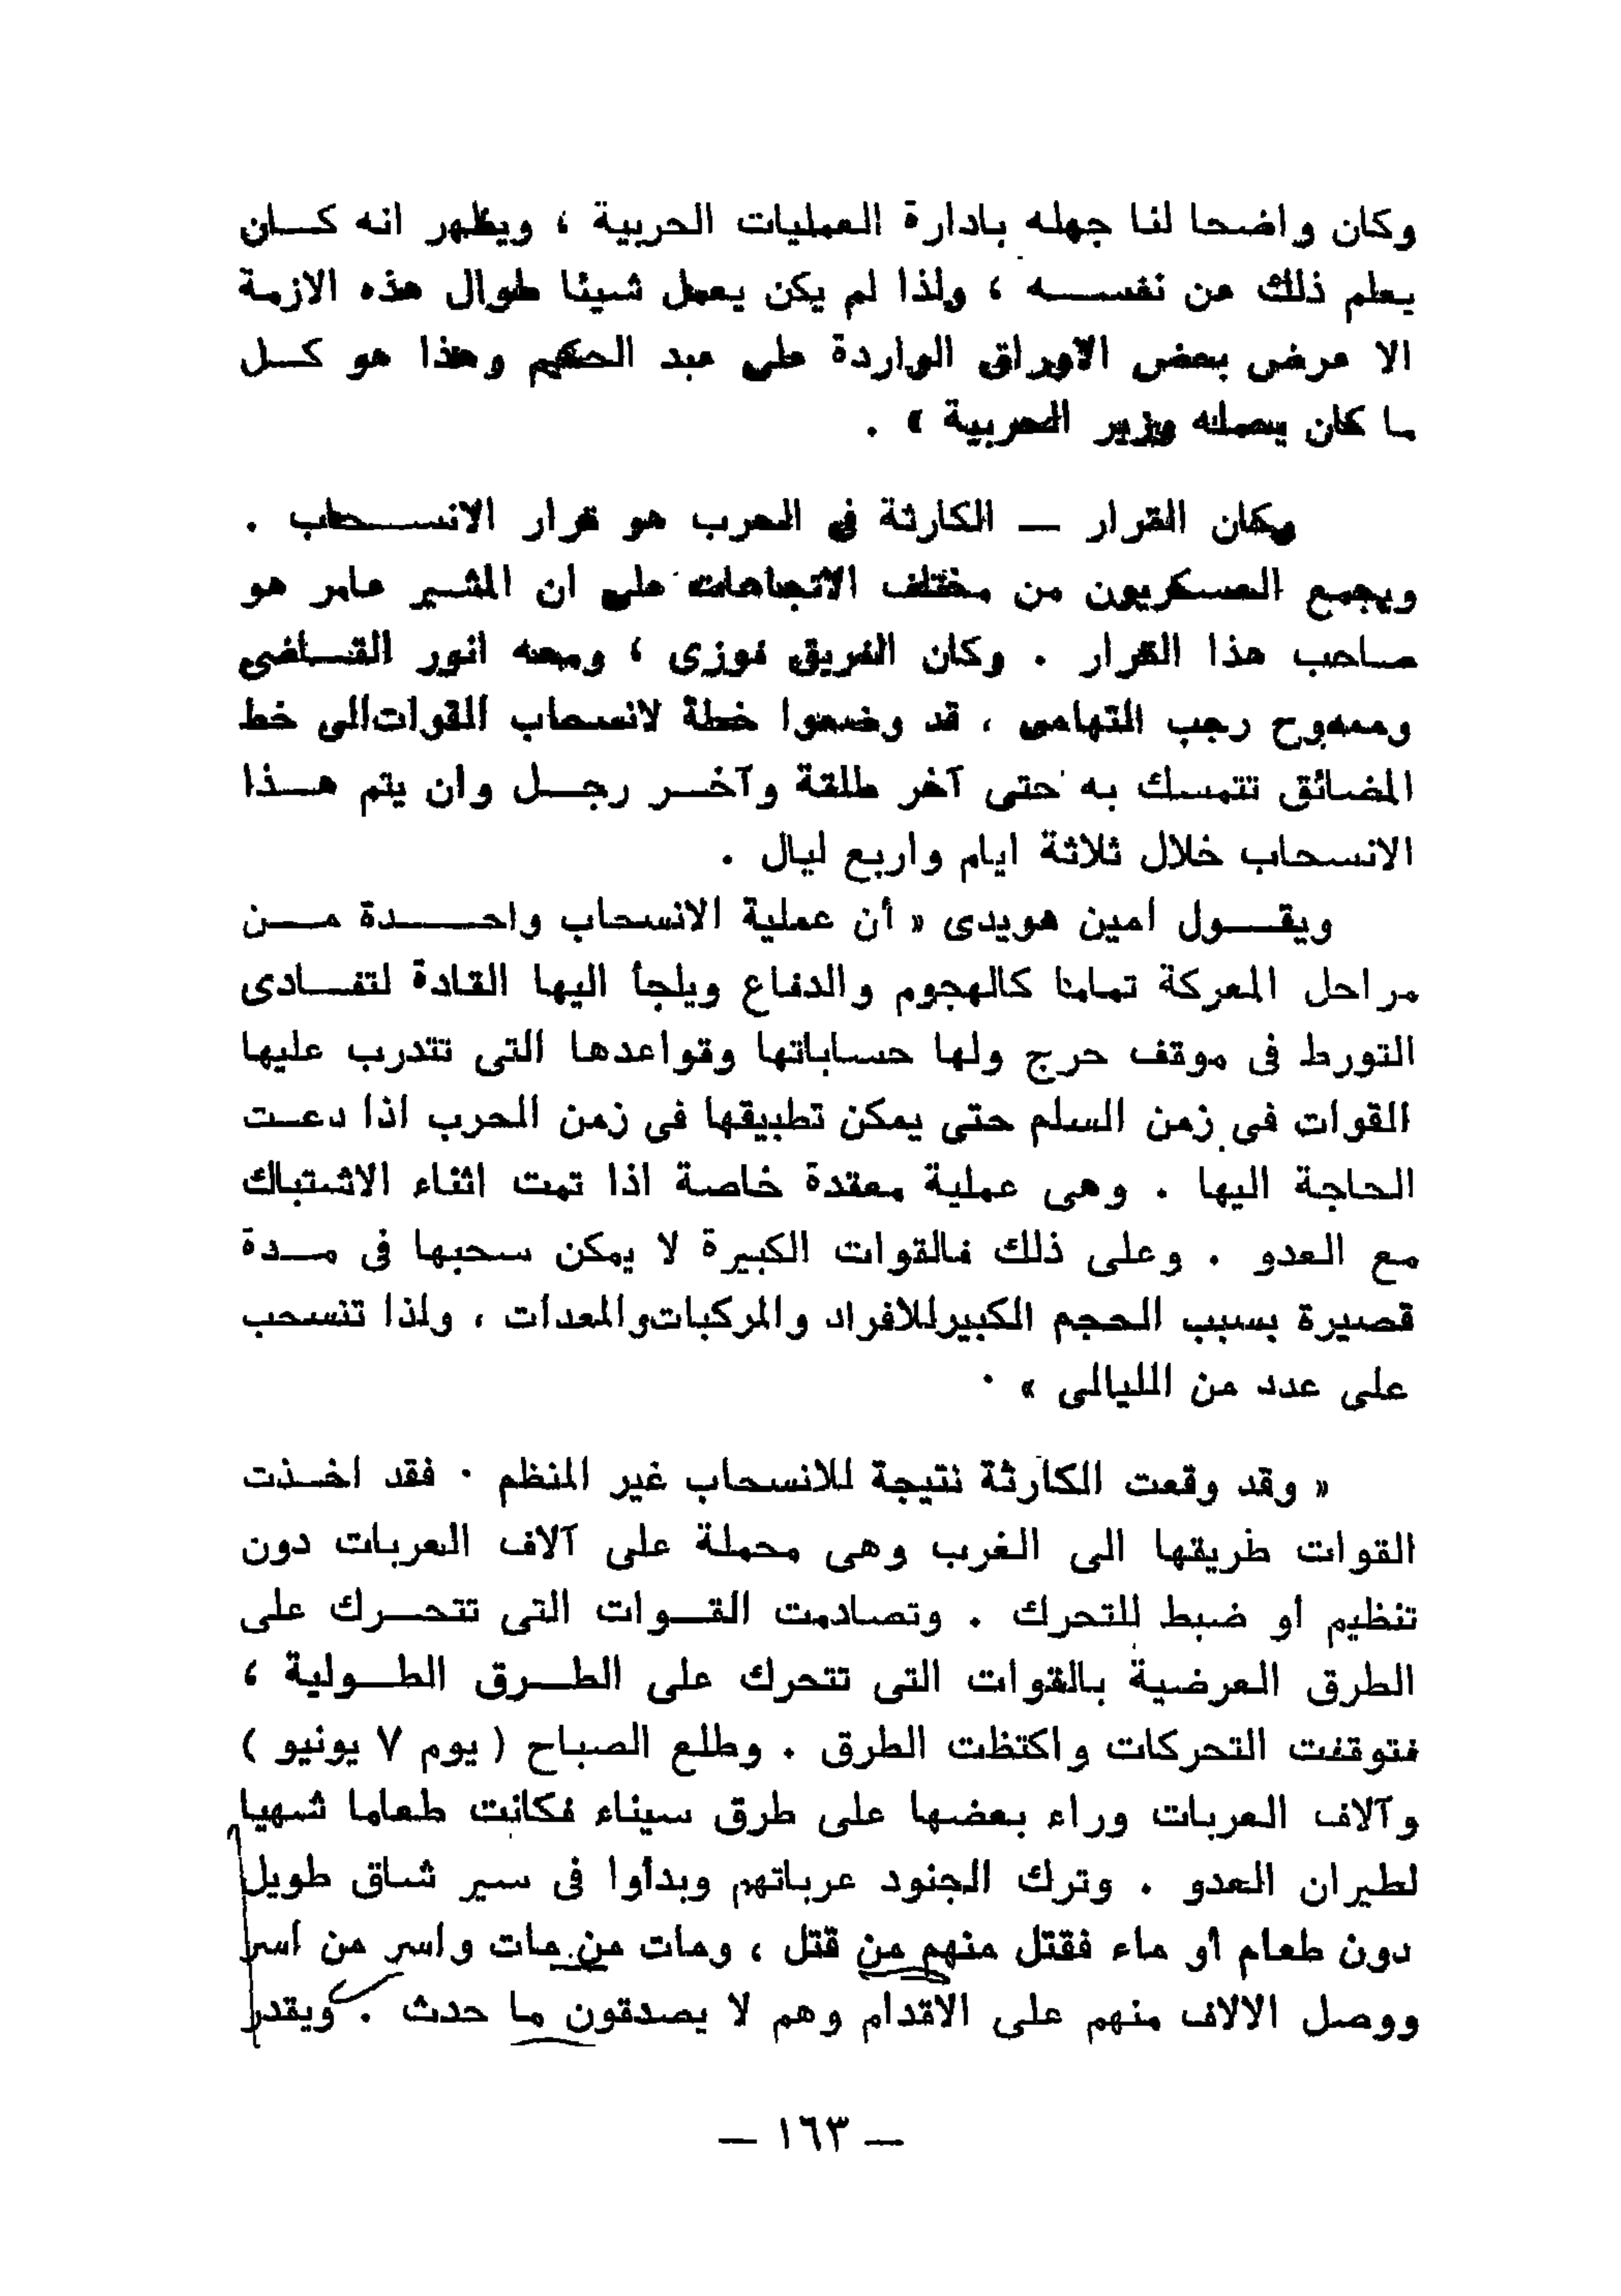 وكان واضحا لنا جهله بادارة العمليات الحربية ، ويظهر انه كان
يعلم ذلك عن نفسه ، ولذا لم يكن يعمل شيئا طوال هذه الازمة
الا عرض بعض الاوراق الواردة على عبد الحكيم وهذا هو كل
ما كان يعمله وزير الحربية » .
وكان القرار — الكارثة فى الحرب هو قرار الانسحاب .
ويجمع العسكريون من مختلف الاتجاهات على ان المشير عامر هو
صاحب هذا القرار . وكان الفريق فوزى ، ومعه انور القاضى
وممدوح رجب التهامى ، قد وضعوا خطة لانسحاب القوات الى خط
المضائق تتمسك به حتى آخر طلقة وآخر رجل وان يتم هذا
الانسحاب خلال ثلاثة ايام واربع ليال .
ويقول امين هويدى « أن عملية الانسحاب واحدة من
مراحل المعركة تماما كالهجوم والدفاع ويلجأ اليها القادة لتفادى
التورط فى موقف حرج ولها حساباتها وقواعدها التى تتدرب عليها
القوات فى زمن السلم حتى يمكن تطبيقها فى زمن الحرب اذا دعت
الحاجة اليها . وهى عملية معقدة خاصة اذا تمت اثناء الاشتباك
مع العدو . وعلى ذلك فالقوات الكبيرة لا يمكن سحبها فى مدة
قصيرة بسبب الحجم الكبير للافراد والمركبات والمعدات ، ولذا تنسحب
على عدد من الليالى » .
« وقد وقعت الكارثة نتيجة للانسحاب غير المنظم . فقد اخذت
القوات طريقها الى الغرب وهى محملة على آلاف العربات دون
تنظيم او ضبط للتحرك . وتصادمت القوات التى تتحرك على
الطرق العرضية بالقوات التى تتحرك على الطرق الطولية ،
فتوقفت التحركات واكتظت الطرق . وطلع الصباح ( يوم ٧ يونيو )
وآلاف العربات وراء بعضها على طرق سيناء فكانت طعاما شهيا
لطيران العدو . وترك الجنود عرباتهم وبدأوا فى سير شاق طويل
دون طعام أو ماء فقتل منهم من قتل ، ومات من مات واسر من اسر
ووصل الالاف منهم على الاقدام وهم لا يصدقون ما حدث . ويقدر
— ١٦٣ —